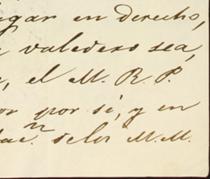 ugar en derecho,
valedero sea,
, el M. R. P.
or por sí, y en
ac.n de los M. M.